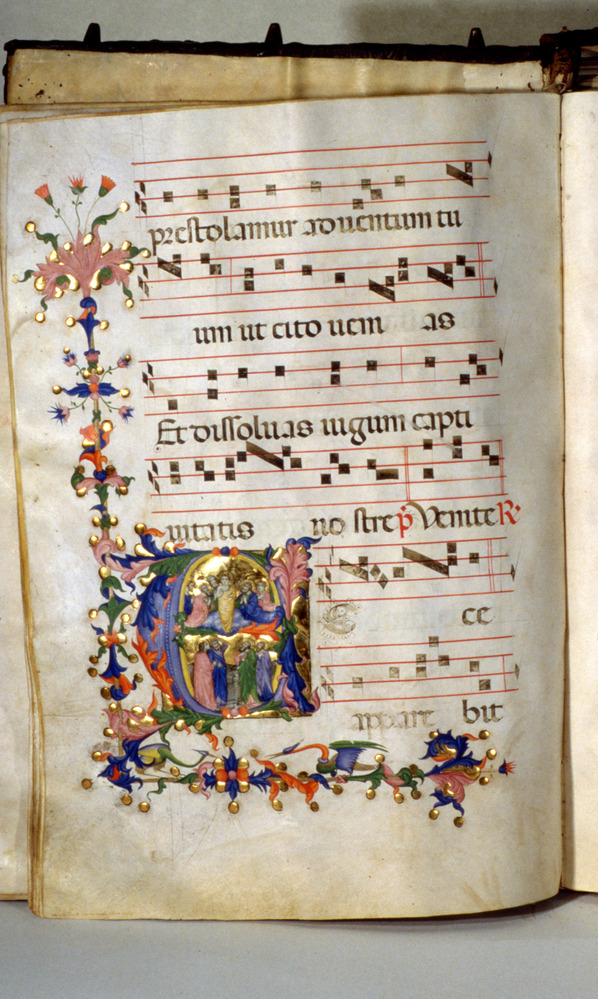 prestolamur adventum tu
um ut cito veni as
Et dissolvas iugum capti
vitatis no stre p̄ Venite R
E ce
appare bit